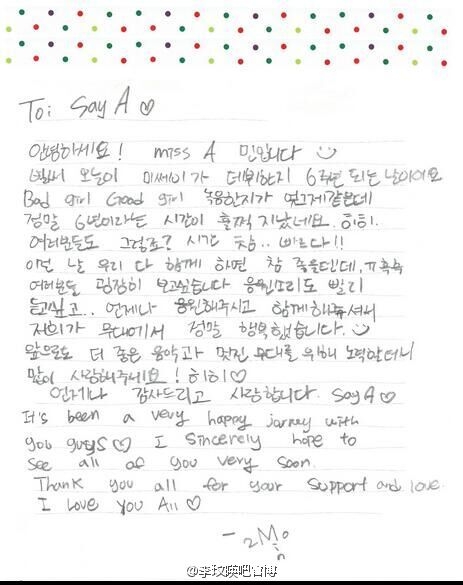 To: Say A ♡
안녕하세요! miss A 민입니다 :)
벌써 오늘이 미쓰에이가 데뷔한지 6주년 되는 날이에요
Bad girl Good girl 녹음한지가 엊그제같은데
정말 6년이라는 시간이 훌쩍 지났네요. 히히.
여러분들도 그렇죠? 시간 참.. 빠르다!!
이런 날 우리 다 함께 하면 참 좋을텐데, ㅠ흑흑
여러분들 굉장히 보고싶습니다 응원소리도 빨리
듣고싶고.. 언제나 응원해주시고 함께해주셔서
저희가 무대에서 정말 행복했습니다. :)
앞으로도 더 좋은 음악과 멋진 무대를 위해 노력할테니
많이 사랑해주세요! 히히♡
언제나 감사드리고 사랑합니다. Say A ♡
It's been a very happy jorney with
you guys♡ I sincerely hope to
see all of you very soon.
Thank you all for your support and love.
I love you All ♡
- 2Min
@李玟暎吧官博